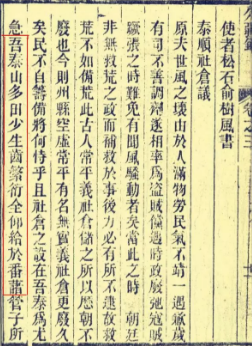 使者松石俞樹風書
泰順社倉議
原夫世風之壊由於人滿物勞民氣不靖一遇歉歲
有司不善調劑遂相率爲盜賊儻遇時政廢弛寇賊
鴟張之時難免有聞風騷動者矣當此之時 朝廷
非無救荒之政而補救於事後力必有所不逮故救
荒不如備荒此古人常平義社倉儲之所以慮朝不
廢也今則州縣空虛常平有名無實義社倉更廢久
矣民不自爲備將何恃乎且社倉之設在吾泰爲尤
急吾泰山多田少生齒繁衍全仰給於番藷管子所